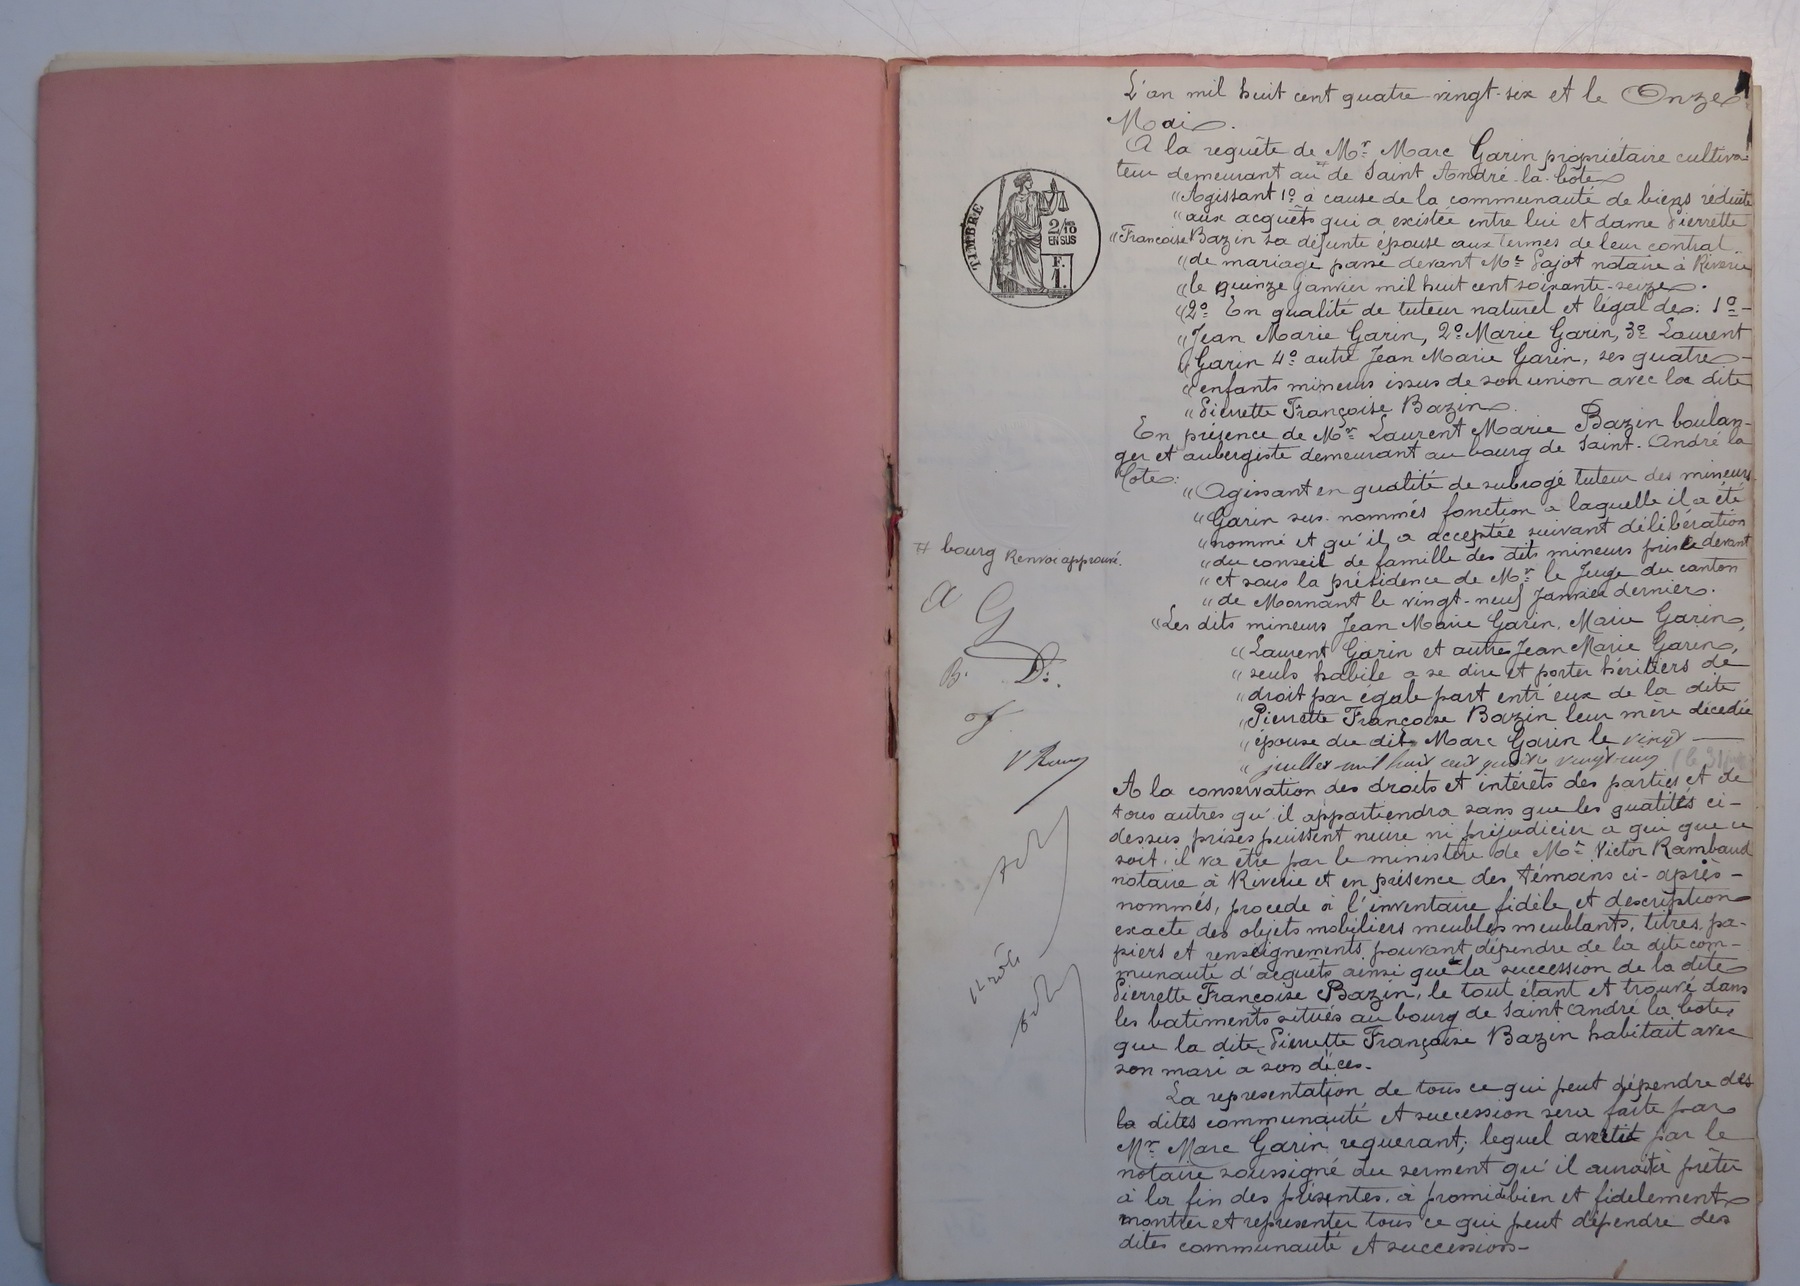 L'an mil huit cent quatre-vingt-six et le Onze
Mai.
A la requête de Mr. Marc Garin propriétaire cultiva-
teur demeurant au # de Saint André-la-Côte
"Agissant 1º à cause de la communauté de biens réduite
"aux acquêts qui a existée entre lui et dame Pierrette
"Françoise Bazin sa défunte épouse aux termes de leur contrat
"de mariage passé devant Me notaire à Riverie
"le quinze janvier mil huit cent soixante-seize.
"2º En qualité de tuteur naturel et légal de: 1º-
"Jean Marie Garin, 2º Marie Garin, 3º Laurent
"Garin 4º autre Jean Marie Garin, ses quatre-
"enfants mineurs issus de son union avec la dite
"Pierrette Françoise Bazin.
En présence de Mr. Laurent Marie Bazin boulan-
ger et aubergiste demeurant au bourg de Saint-André la
Côte:
"Agissant en qualité de subrogé tuteur des mineurs
"Garin sus-nommés fonction a laquelle il a été
"nommé et qu'il a acceptée suivant délibération
"du conseil de famille des dits mineurs prise devant
"et sous la présidence de Mr. le Juge du canton
"de Mornant le vingt-neuf Janvier dernier.
"Les dits mineurs Jean Marie Garin, Marie Garin,
"Laurent Garin et autre Jean Marie Garin,
"seuls habile a se dire et porter héritiers de
"droit par égale part entr'eux de la dite
"Pierrette Françoise Bazin leur mère décédée
"épouse du dit Marc Garin le vingt
"juillet mil huit cent quatre vingt cinq
A la conservation des droits et intérêts des parties et de
tous autres qu'il appartiendra sans que les qualités ci-
dessus prises puissent nuire ni préjudicier a qui que ce
soit, il va être par le ministère de Me Victor Rambaud
notaire à Riverie et en présence des témoins ci-après-
nommés, procede à l'inventaire fidèle et description
exacte des objets mobiliers meubles meublants, titres, pa-
piers et renseignements pouvant dépendre de la dite com-
munauté d'acquêts ainsi que la succession de la dite
Pierrette Françoise Bazin, le tout étant et trouvé dans
les batiments situés au bourg de Saint André la Côte,
que la dite Pierrette Françoise Bazin habitait avec
son mari a son décès.
La representation de tous ce qui peut dépendre des
la dites communauté et succession sera faite par
Mr. Marc Garin requerant; lequel avertit par le
notaire soussigné du serment qu'il aurait à prêter
à la fin des présentes, à promis bien et fidèlement
montrer et representer tous ce qui peut dépendre des
dites communauté et succession-
TIMBRE
2/10
EN SUS
F.
1.
# bourg Renvoi approuvé.
G
B. D.